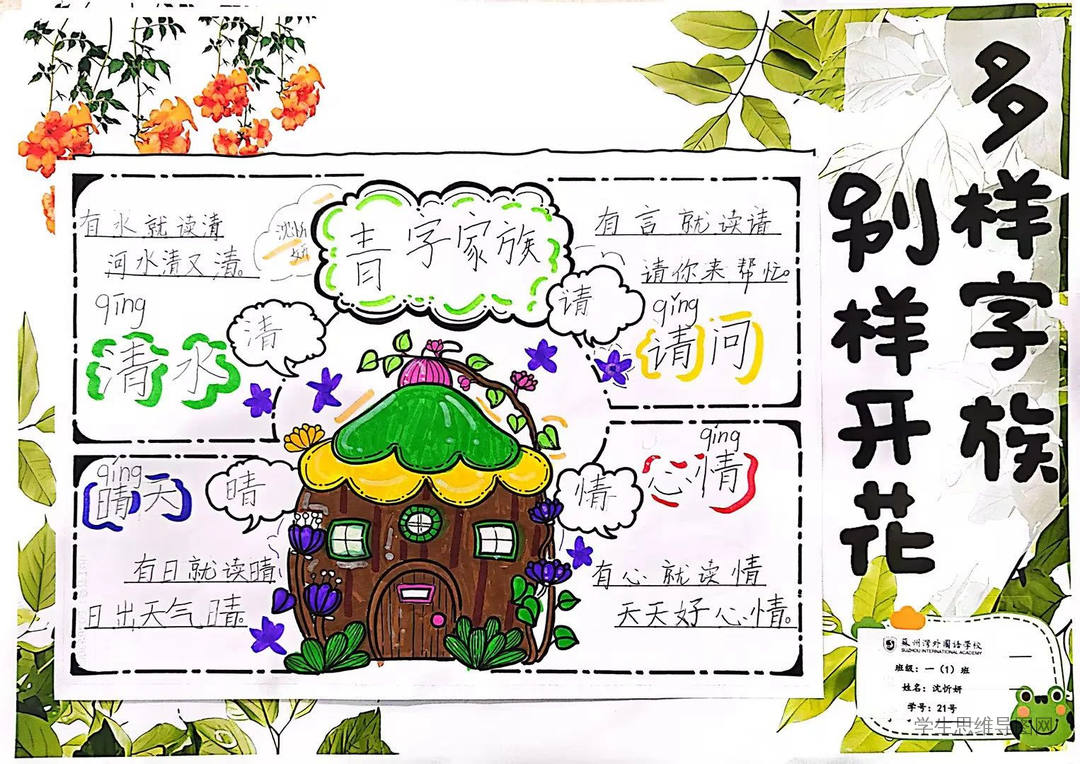 多样字族
别样开花
青字家族
有水就读清
河水清又清。
qīng
清水
清
有言就读请
请你来帮忙。
qǐng
请问
请
qíng
晴天
晴
有日就读晴
日出天气晴。
qíng
心情
情
有心就读情
天天好心情。
苏州湾外国语学校
SUZHOU INTERNATIONAL ACADEMY
班级：一（1）班
姓名：沈忻妍
学号：21号
学生思维导图网